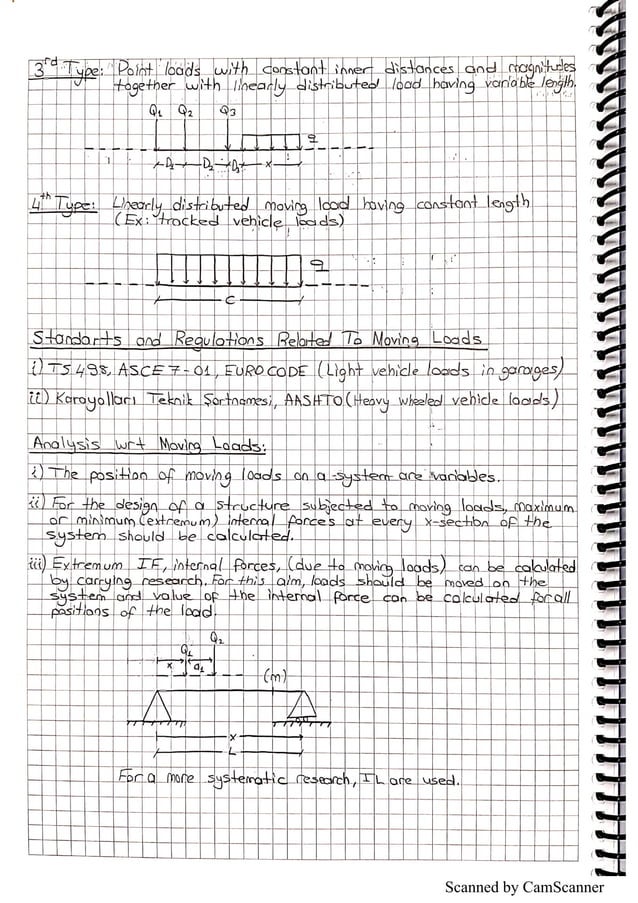 3rd Type: Point loads with constant inner distances and magnitudes
together with linearly distributed load having variable length.
Q1 Q2 Q3
q
D1 D2 D3 x
4th Type: Linearly distributed moving load having constant length
(Ex: tracked vehicle loads)
q
C
Standarts and Regulations Related To Moving Loads
i) TS498, ASCE 7-01, EUROCODE (Light vehicle loads in garages)
ii) Karayolları Teknik Şartnamesi, AASHTO (Heavy wheeled vehicle loads)
Analysis wrt Moving Loads:
i) The position of moving loads on a system are variables.
ii) For the design of a structure subjected to moving loads, maximum
or minimum (extremum) internal forces at every x-section of the
system should be calculated.
iii) Extremum IF, internal forces, (due to moving loads) can be calculated
by carrying research. For this aim, loads should be moved on the
system and value of the internal force can be calculated for all
positions of the load.
Q2
Q1
x a1
(m)
x
L
For a more systematic research, IL are used.
Scanned by CamScanner